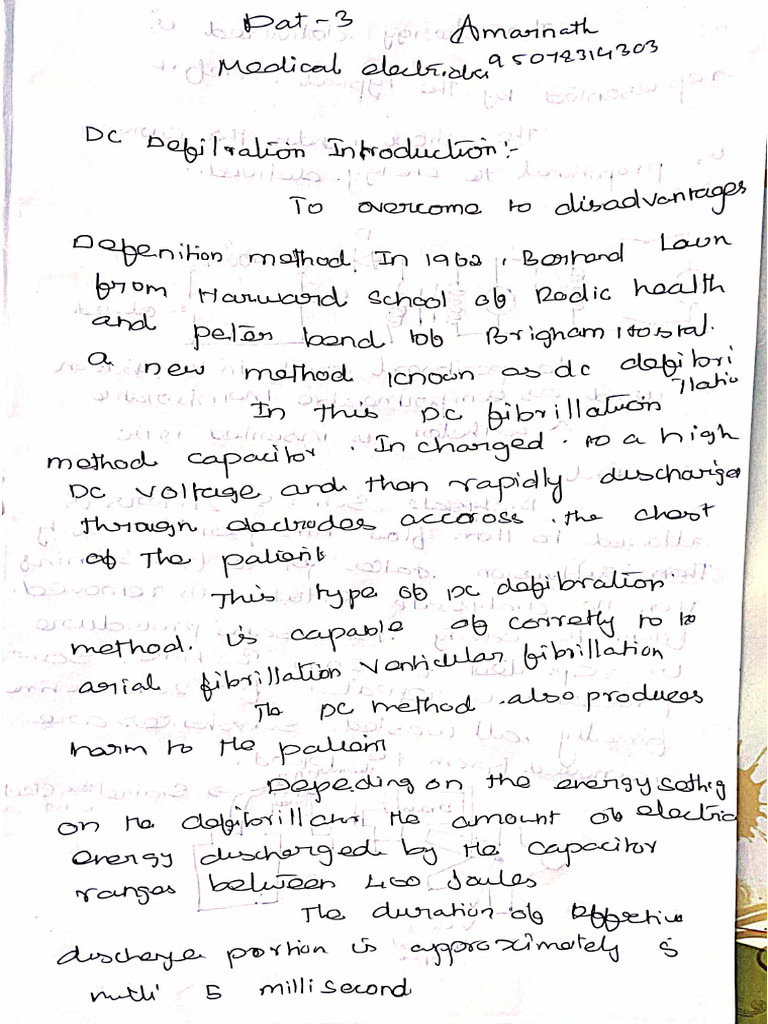 Pat-3 Amarnath
Medical electricka 95078314303
DC Defilration Introduction:-
To overcome to disadvantages
Defenition method. In 1962, Bernard Lown
from Harward School of Rodic health
and peter bend ob Brigham Hostal.
a new method known as dc defibri
llatio
In this DC fibrillation
method capacitor. In charged. to a high
DC voltage and then rapidly discharge
through electrodes accross. the chest
of The patient
This type of DC defibration.
method. is capable of corretly to to
arial fibrillation Venticular fibrillation
The DC method. also produces
harm to the patient
Depeding on the energy sething
on the defibrillator the amount of electric
energy discharged by the capacitor
ranges between 400 Joules
The duration of Effective
discharge portion is approximately 5
milli 5 millisecond